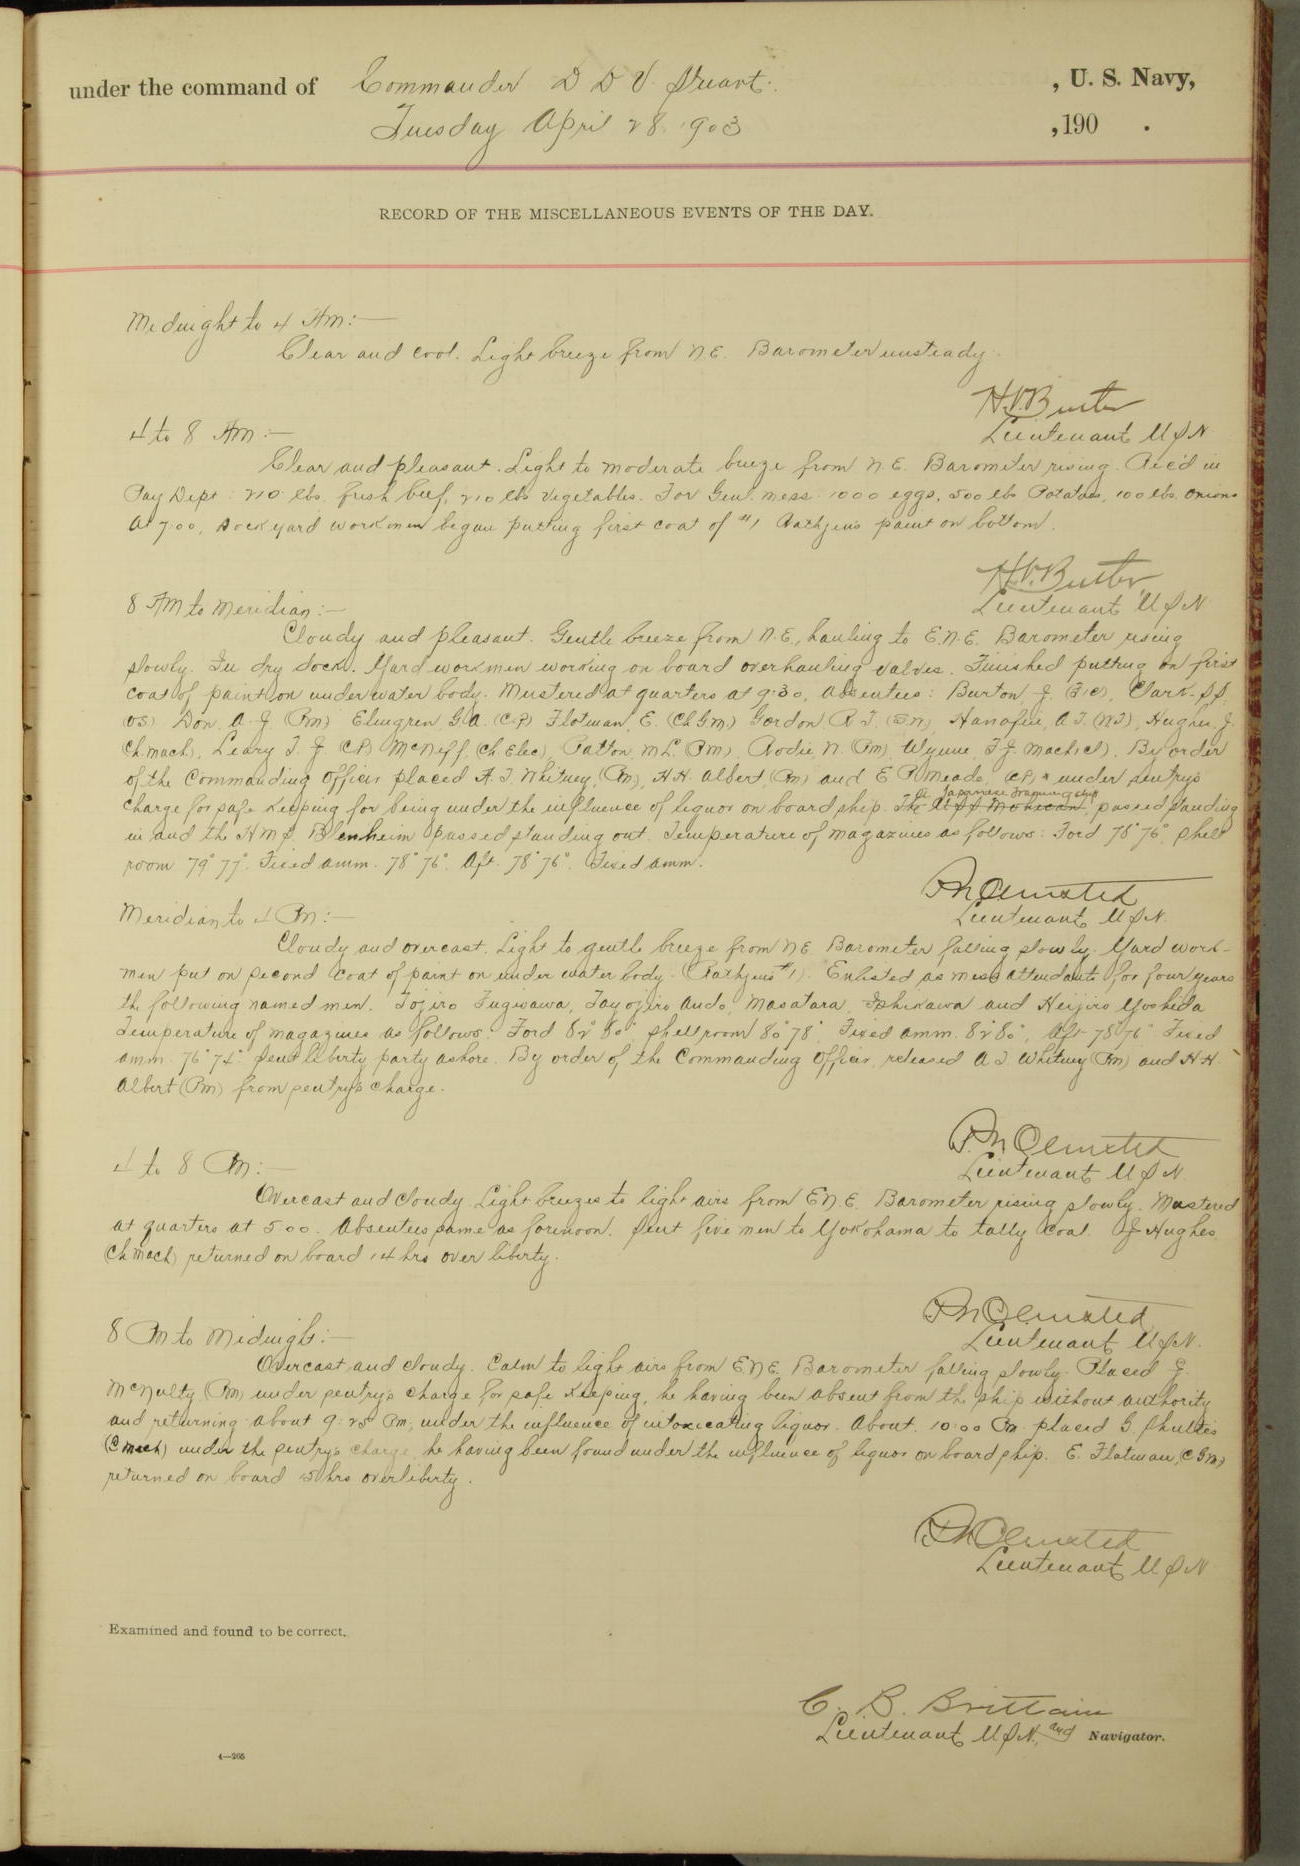 under the command of Commander D D V. Stuart. , U. S. Navy,
Tuesday April 28. 1903 , 190 .
RECORD OF THE MISCELLANEOUS EVENTS OF THE DAY.
Midnight to 4 AM:—
Clear and cool. Light breeze from N.E. Barometer unsteady.
H.V. Butler
Lieutenant U S N
4 to 8 AM:—
Clear and pleasant. Light to moderate breeze from N.E. Barometer rising. Rec'd in
Pay Dept: 210 lbs. fresh beef, 210 lbs vegetables. For Genl. mess: 1000 eggs, 500 lbs Potatoes, 100 lbs. onions
At 7:00, Dock yard workmen began putting first coat of #1 Rathjens paint on bottom.
H.V. Butler
Lieutenant U S N
8 AM to Meridian:—
Cloudy and pleasant. Gentle breeze from N.E., hauling to E.N.E. Barometer rising
slowly. In dry dock. Yard workmen working on board overhauling valves. Finished putting on first
coat of paint on under water body. Mustered at quarters at 9:30, absentees: Burton J. (F1c), Clark S.S.
(OS) Don. A. J. (Pm) Elmgren G.A. (CP) Flotman, E. (Ch Gm) Gordon R. T. (SN) Hanafin, A.T. (NT), Hughes, J.
Ch. mach), Leary T. J. (CP) McNeff (Ch Elec), Patton, M L (Pm), Rodie N. (Pm), Wynne T. J. Mach1cl). By order
of the Commanding Officer placed A. T. Whitney, (Pm), H.H. Albert (Pm) and E. P. Meade, (CP) under sentry's
charge for safe keeping for being under the influence of liquor on board ship. The U.S.S. Mohican A Japanese training ship passed standing
in and the H M S. Blenheim passed standing out. Temperature of magazines as follows: Ford 78° 76°. Shell
room 79° 77°. Fixed amm. 78° 76°. Aft. 78° 76°. Fixed amm.
P N Olmsted
Lieutenant U S N.
Meridian to 4 PM:—
Cloudy and overcast. Light to gentle breeze from NE Barometer falling slowly. Yard work-
men put on second coat of paint on under water body. (Rathjens #1). Enlisted as mess attendants for four years
the following named men. Tojiro Fugisawa, Tayojiro Ando, Masatara Ishikawa and Heijiro Yoshida
Temperature of magazines as follows: Ford 82° 80°, Shell room 80° 78°, Fixed amm. 82° 80°, Aft 78° 76° Fixed
amm. 76° 74° Sent liberty party ashore. By order of the Commanding Officer, released A. T. Whitney (Pm) and H.H.
Albert (Pm) from sentry's charge.
P.N Olmsted
Lieutenant U S N.
4 to 8 PM:—
Overcast and Cloudy. Light breezes to light airs from E.N.E. Barometer rising slowly. Mustered
at quarters at 5:00. Absentees same as forenoon. Sent five men to Yokohama to tally coal. J. Hughes
(Ch mach) returned on board 14 hrs over liberty.
P N Olmsted
Lieutenant U S N.
8 PM to Midnight:—
Overcast and cloudy. Calm to light airs from E.N.E. Barometer falling slowly. Placed J.
McNulty (Pm) under sentry's charge for safe keeping, he having been absent from the ship without authority
and returning about 9:25 Pm, under the influence of intoxicating liquor. About 10:00 Pm placed G. Shultes
(C Mach) under the sentry's charge, he having been found under the influence of liquor on board ship. E. Flatman, (C Gm)
returned on board 15 hrs overliberty.
P N Olmsted
Lieutenant U S N
Examined and found to be correct.
C. B. Brittain
Lieutenant U S N, and Navigator.
4—265